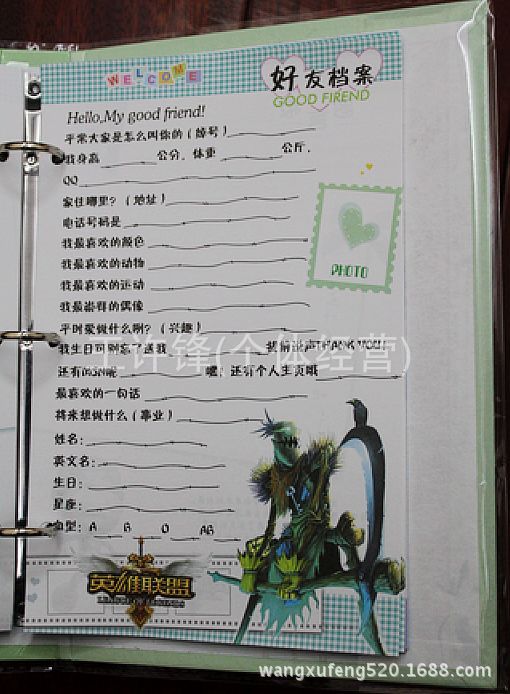 WELCOME
好友档案
GOOD FIREND
Hello,My good friend!
平常大家是怎么叫你的（绰号）
我身高 公分，体重 公斤，
QQ
家住哪里？（地址）
电话号码是
我最喜欢的颜色
我最喜欢的动物
我最喜欢的运动
我最崇拜的偶像
平时爱做什么咧？（兴趣）
我生日可别忘了送我 提前说声THANK YOU!
还有的SN呢 嘿！还有个人主页哦
最喜欢的一句话
将来想做什么（事业）
姓名：
英文名：
生日：
星座：
血型： A B O AB
PHOTO
英雄联盟
王许锋(个体经营)
wangxufeng520.1688.com